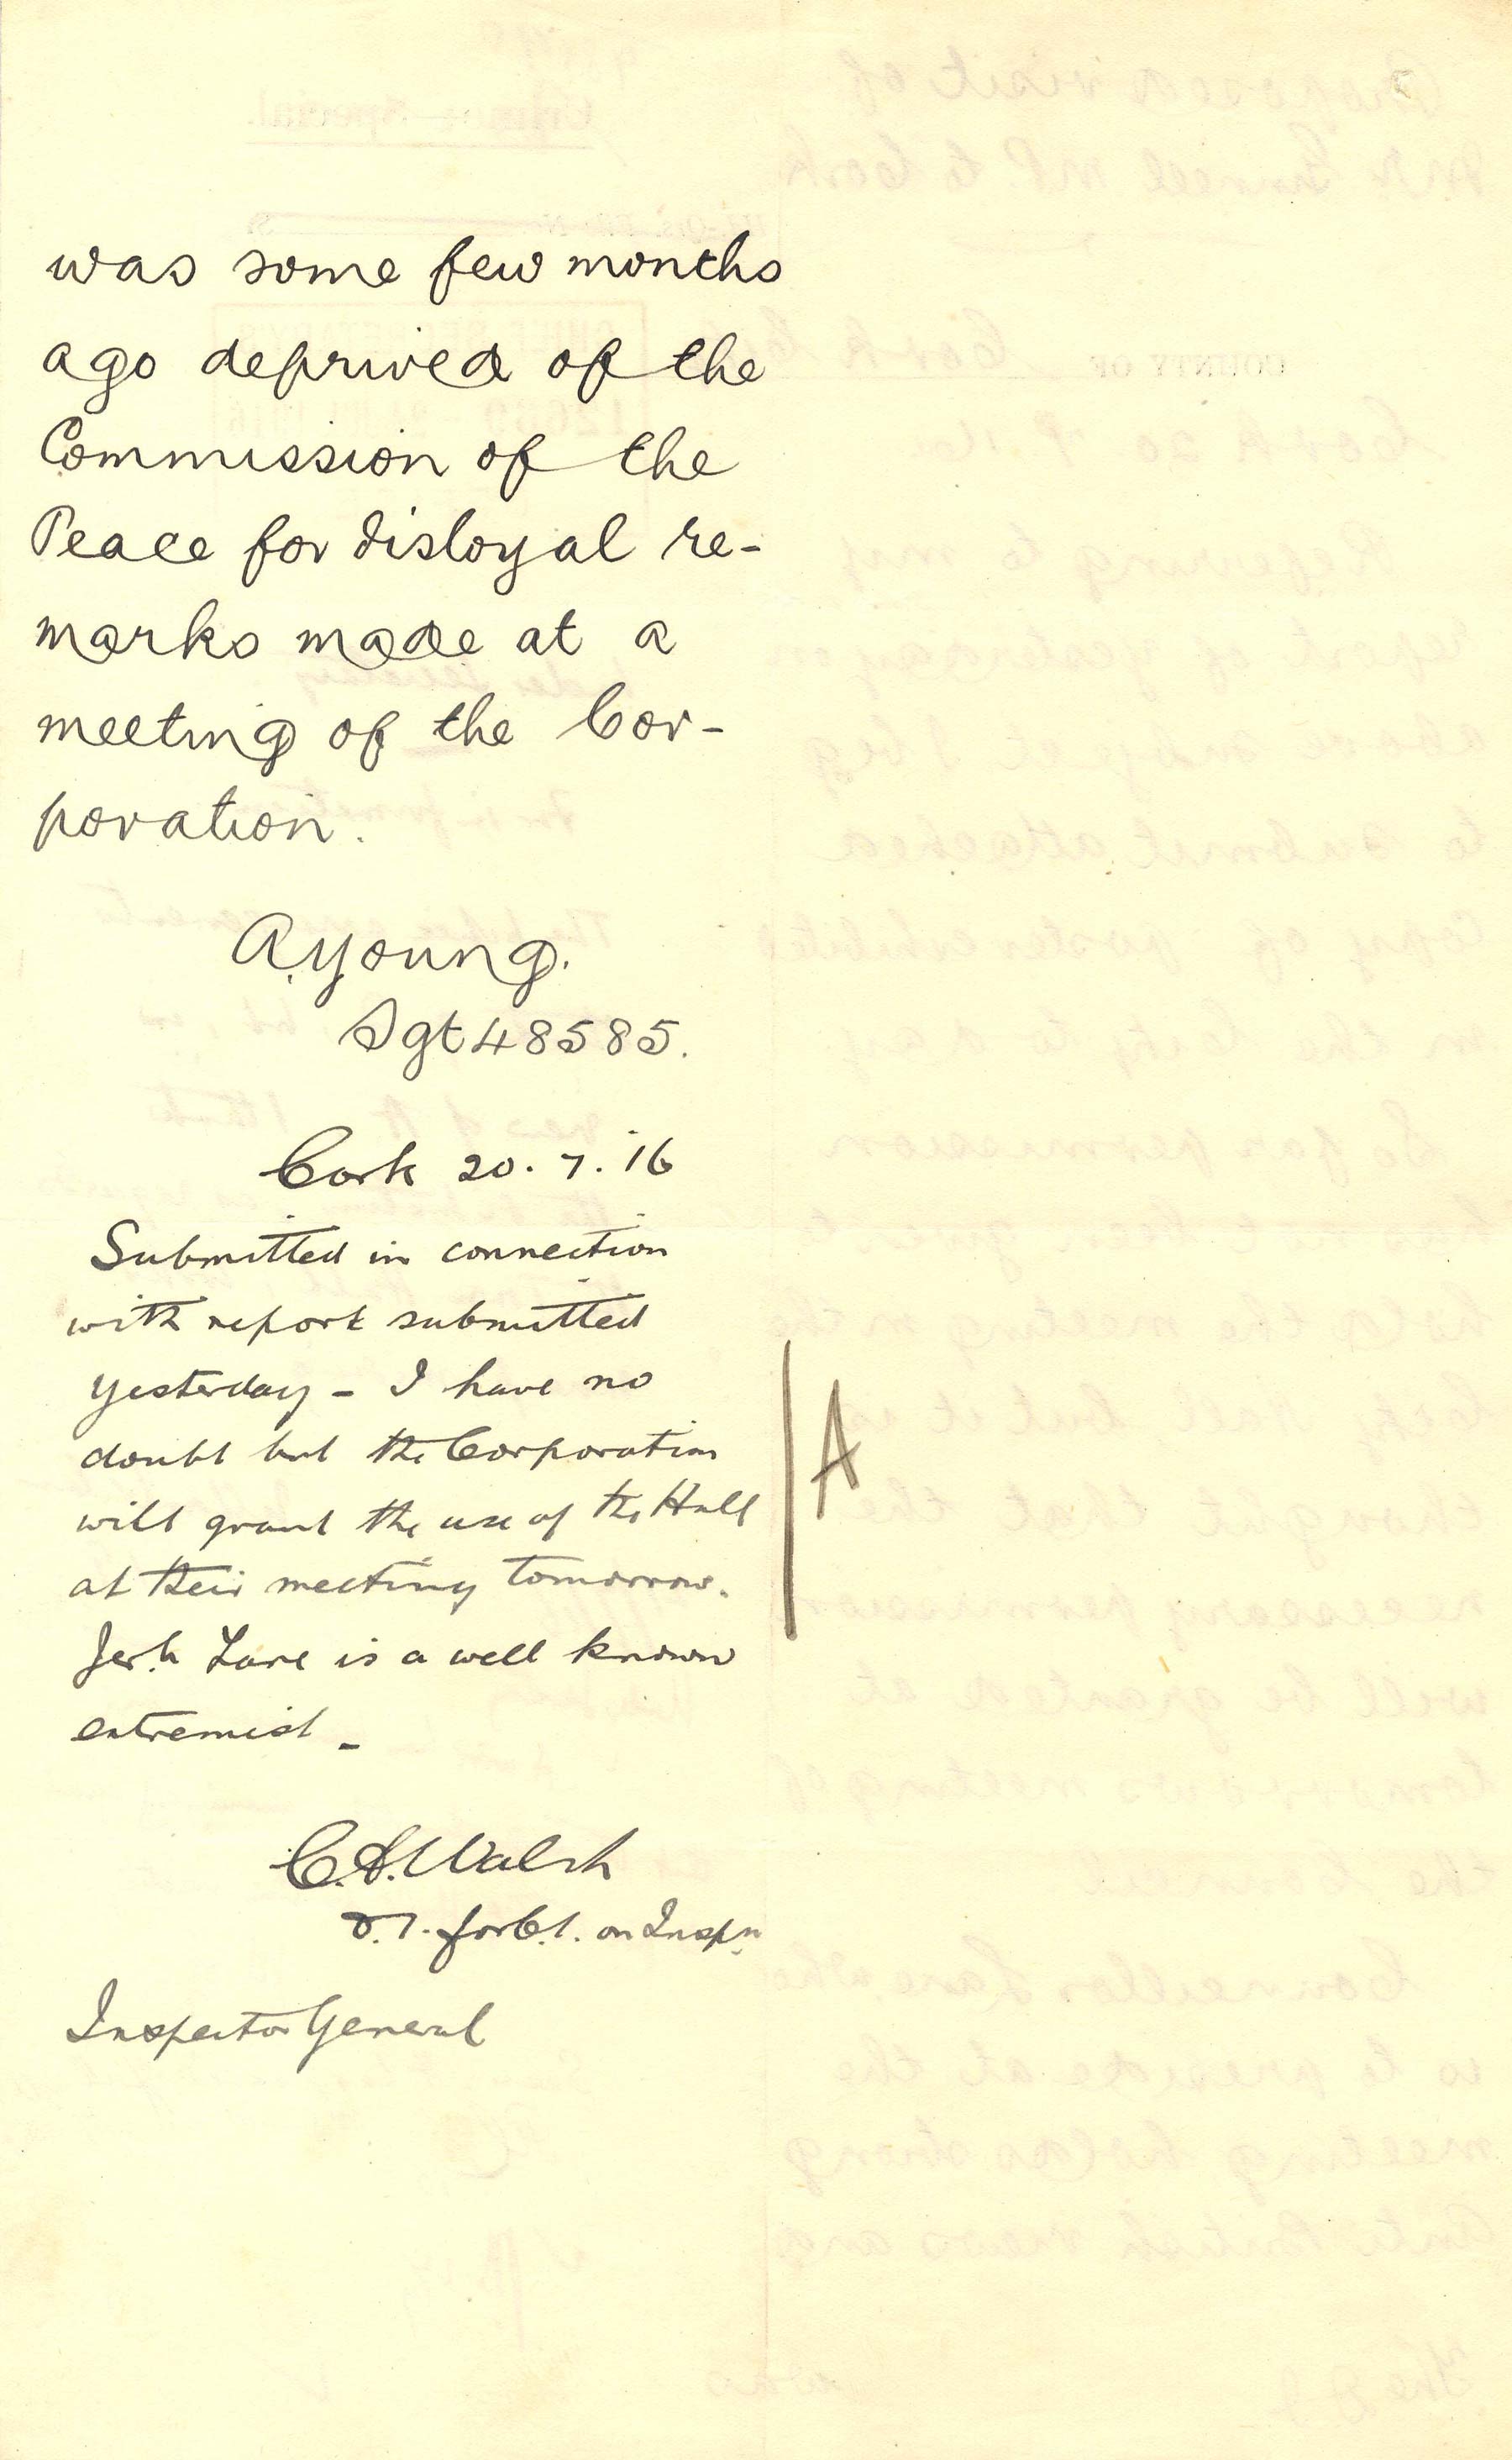 was some few months
ago deprived of the
Commission of the
Peace for disloyal re-
marks made at a
meeting of the Cor-
poration.
A. Young.
Sgt 48585.
Cork 20. 7. 16
Submitted in connection
with report submitted
yesterday - I have no
doubt but the Corporation
will grant the use of the Hall
at their meeting tomorrow.
Jerh Lane is a well known
extremist -
A
C.A. Walsh
D.I. for C.I. on Inspn
Inspector General